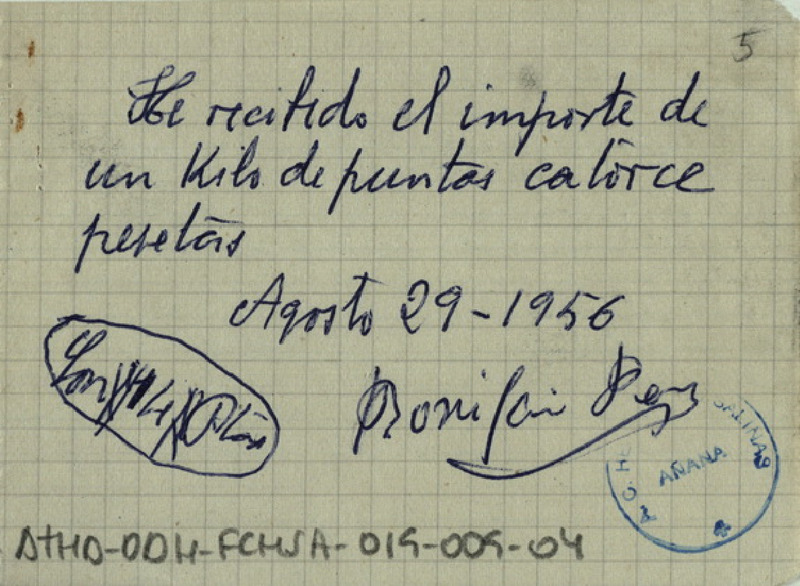 5
He recibido el importe de
un Kilo de puntas catorce
pesetas
Agosto 29-1956
Son #14# Ptas
Bonifacio Perez
SALINAS
AÑANA
ATHD-DDH-FCHSA-019-009-04